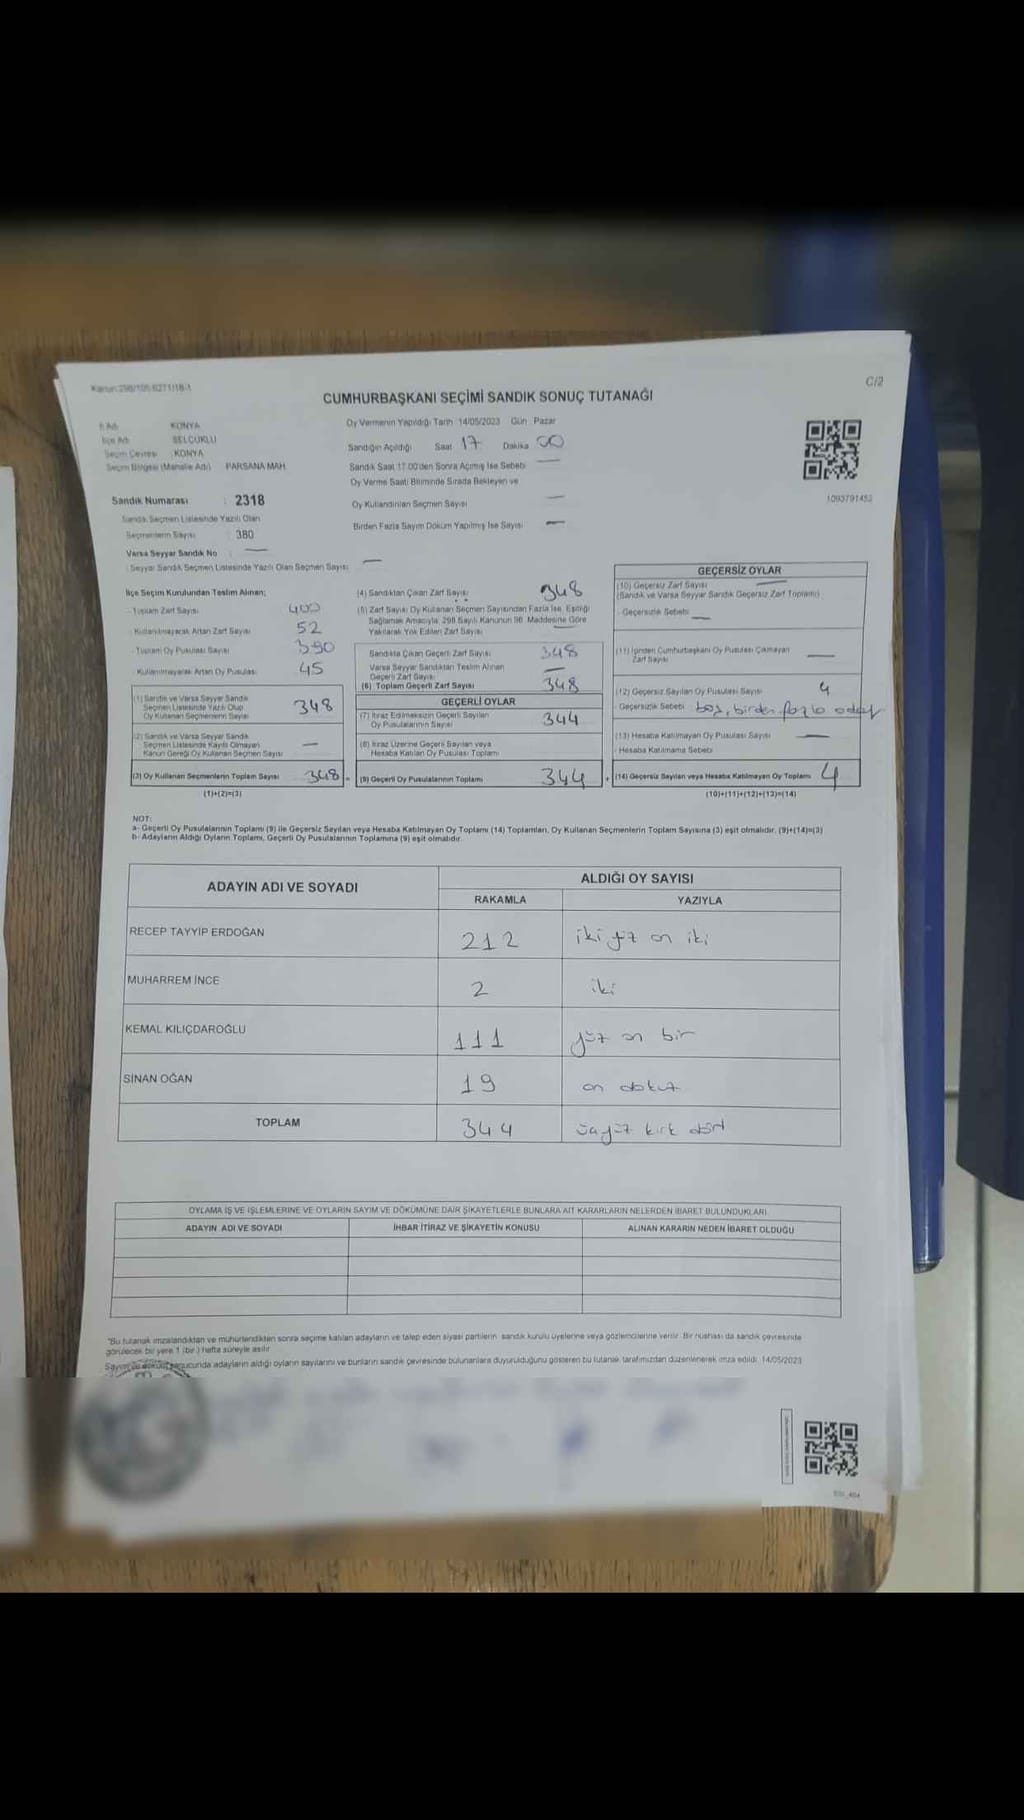 Kanun:298/105 6271/18-1
C/2
CUMHURBAŞKANI SEÇİMİ SANDIK SONUÇ TUTANAĞI
İl Adı KONYA
İlçe Adı SELÇUKLU
Seçim Çevresi KONYA
Seçim Bölgesi (Mahalle Adı) PARSANA MAH.
Sandık Numarası : 2318
Sandık Seçmen Listesinde Yazılı Olan
Seçmenlerin Sayısı : 380
Varsa Seyyar Sandık No : —
Seyyar Sandık Seçmen Listesinde Yazılı Olan Seçmen Sayısı —
Oy Vermenin Yapıldığı Tarih 14/05/2023 Gün Pazar
Sandığın Açıldığı Saat 17 Dakika 00
Sandık Saat 17.00'den Sonra Açılmış İse Sebebi —
Oy Verme Saati Bitiminde Sırada Bekleyen ve
Oy Kullandırılan Seçmen Sayısı —
Birden Fazla Sayım Döküm Yapılmış İse Sayısı —
1093791452
İlçe Seçim Kurulundan Teslim Alınan;
- Toplam Zarf Sayısı 400
- Kullanılmayarak Artan Zarf Sayısı 52
- Toplam Oy Pusulası Sayısı 390
- Kullanılmayarak Artan Oy Pusulası 45
(1) Sandık ve Varsa Seyyar Sandık
Seçmen Listesinde Yazılı Olup
Oy Kullanan Seçmenlerin Sayısı 348
(2) Sandık ve Varsa Seyyar Sandık
Seçmen Listesinde Kayıtlı Olmayan
Kanun Gereği Oy Kullanan Seçmen Sayısı —
(3) Oy Kullanan Seçmenlerin Toplam Sayısı 348 =
(1)+(2)=(3)
(4) Sandıktan Çıkan Zarf Sayısı 348
(5) Zarf Sayısı Oy Kullanan Seçmen Sayısından Fazla İse, Eşitliği
Sağlamak Amacıyla, 298 Sayılı Kanunun 98. Maddesine Göre
Yakılarak Yok Edilen Zarf Sayısı —
Sandıkta Çıkan Geçerli Zarf Sayısı 348
Varsa Seyyar Sandıktan Teslim Alınan
Geçerli Zarf Sayısı —
(6) Toplam Geçerli Zarf Sayısı 348
GEÇERLİ OYLAR
(7) İtiraz Edilmeksizin Geçerli Sayılan
Oy Pusulalarının Sayısı 344
(8) İtiraz Üzerine Geçerli Sayılan veya
Hesaba Katılan Oy Pusulası Toplamı
(9) Geçerli Oy Pusulalarının Toplamı 344 +
GEÇERSİZ OYLAR
(10) Geçersiz Zarf Sayısı —
(Sandık ve Varsa Seyyar Sandık Geçersiz Zarf Toplamı)
- Geçersizlik Sebebi —
(11) İçinden Cumhurbaşkanı Oy Pusulası Çıkmayan
Zarf Sayısı —
(12) Geçersiz Sayılan Oy Pusulası Sayısı 4
- Geçersizlik Sebebi boş, birden fazla aday
(13) Hesaba Katılmayan Oy Pusulası Sayısı —
- Hesaba Katılmama Sebebi
(14) Geçersiz Sayılan veya Hesaba Katılmayan Oy Toplamı 4
(10)+(11)+(12)+(13)=(14)
NOT:
a- Geçerli Oy Pusulalarının Toplamı (9) ile Geçersiz Sayılan veya Hesaba Katılmayan Oy Toplamı (14) Toplamları, Oy Kullanan Seçmenlerin Toplam Sayısına (3) eşit olmalıdır. (9)+(14)=(3)
b- Adayların Aldığı Oyların Toplamı, Geçerli Oy Pusulalarının Toplamına (9) eşit olmalıdır.
ADAYIN ADI VE SOYADI ALDIĞI OY SAYISI
RAKAMLA YAZIYLA
RECEP TAYYİP ERDOĞAN 212 iki yüz on iki
MUHARREM İNCE 2 iki
KEMAL KILIÇDAROĞLU 111 yüz on bir
SİNAN OĞAN 19 on dokuz
TOPLAM 344 üçyüz kırk dört
OYLAMA İŞ VE İŞLEMLERİNE VE OYLARIN SAYIM VE DÖKÜMÜNE DAİR ŞİKAYETLERLE BUNLARA AİT KARARLARIN NELERDEN İBARET BULUNDUKLARI
ADAYIN ADI VE SOYADI İHBAR İTİRAZ VE ŞİKAYETİN KONUSU ALINAN KARARIN NEDEN İBARET OLDUĞU
"Bu tutanak imzalandıktan ve mühürlendikten sonra seçime katılan adayların ve talep eden siyasi partilerin sandık kurulu üyelerine veya gözlemcilerine verilir. Bir nüshası da sandık çevresinde
görülecek bir yere 1 (bir) hafta süreyle asılır.
Sayım ve döküm sonucunda adayların aldığı oyların sayılarını ve bunların sandık çevresinde bulunanlara duyurulduğunu gösteren bu tutanak tarafımızdan düzenlenerek imza edildi. 14/05/2023